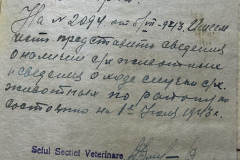 На № 2094 от 5/VII-943. Имеем
честь представить сведения
о наличии с/х животных
и сведения о ходе случки с/х.
животных по району по
состоянию на 1е Июля 1943 г.
Seful Secției Veterinare